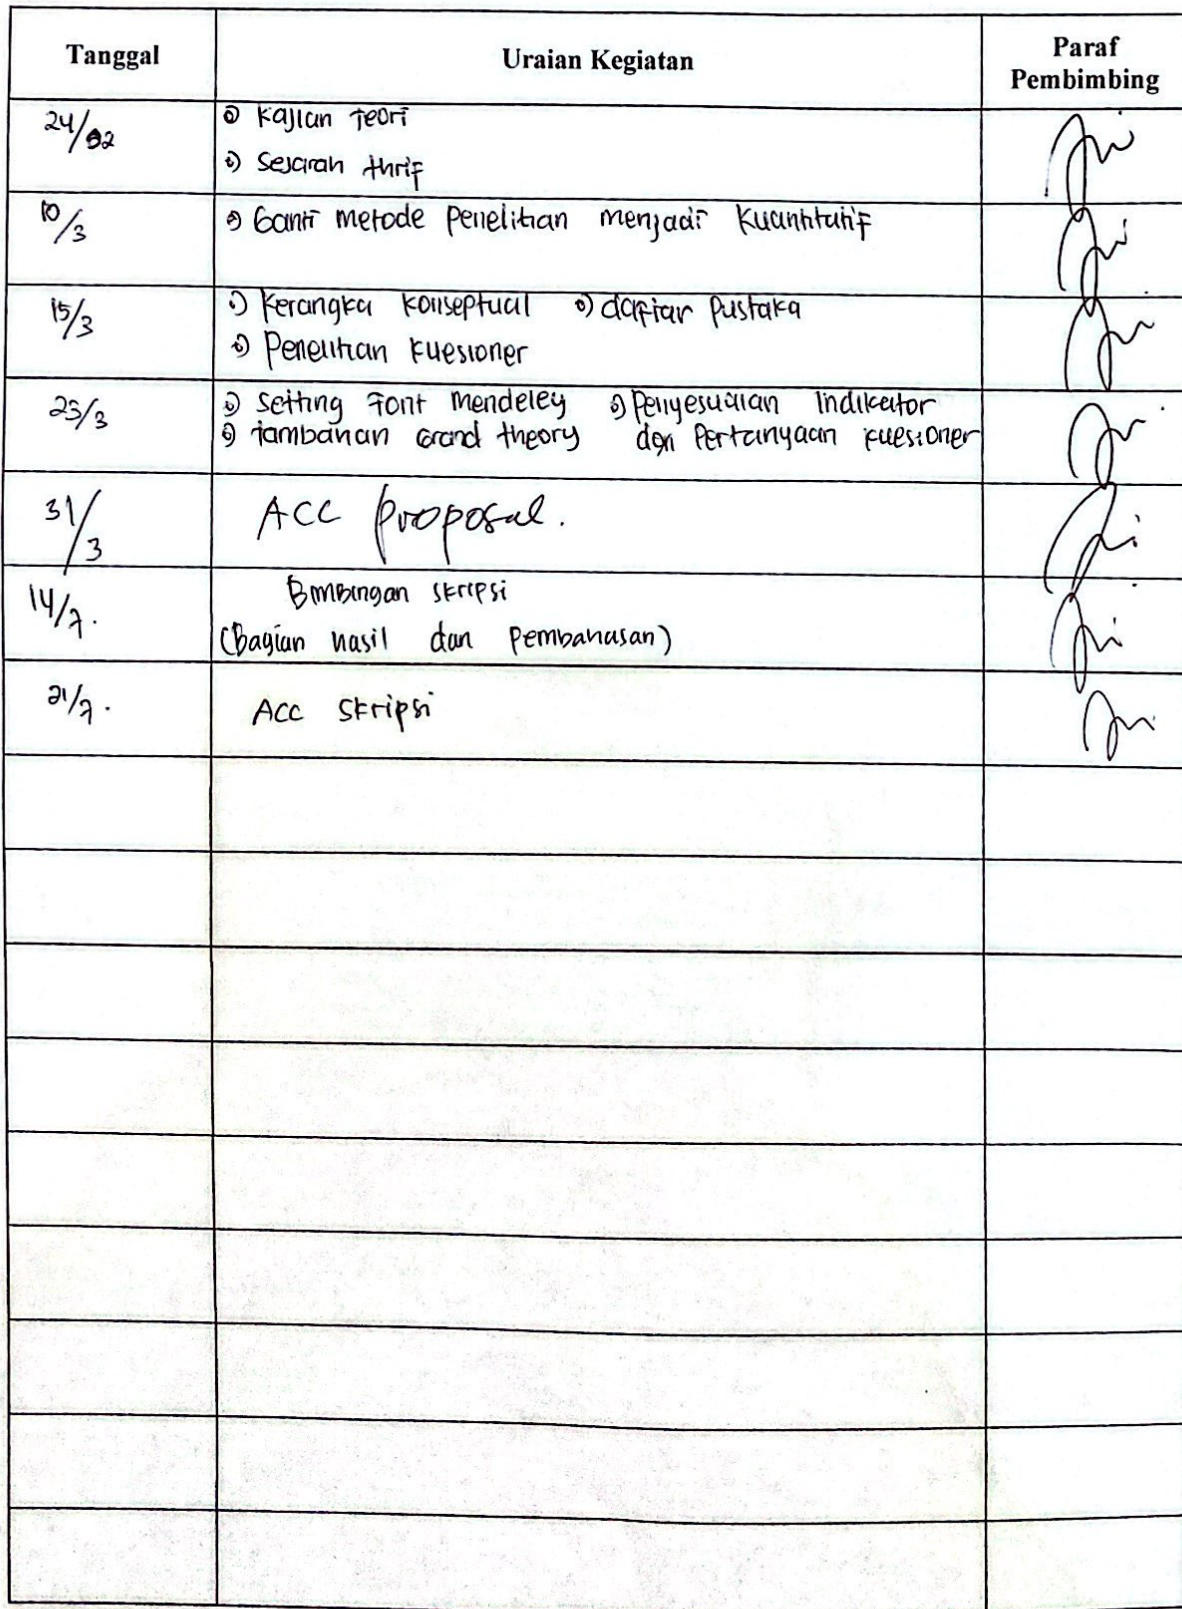 Tanggal Uraian Kegiatan Paraf Pembimbing
24/02 Kajian Teori
Sejarah thrif
10/3 Ganti metode Penelitian menjadi Kuantitatif
15/3 Kerangka Konseptual daftar Pustaka
Penelitian Kuesioner
23/3 Setting Font Mendeley Penyesuaian Indikator
Tambahan Grand theory dan Pertanyaan kuesioner
31/3 ACC Proposal.
14/7. Bimbingan Skripsi
(Bagian hasil dan Pembahasan)
21/7. Acc Skripsi